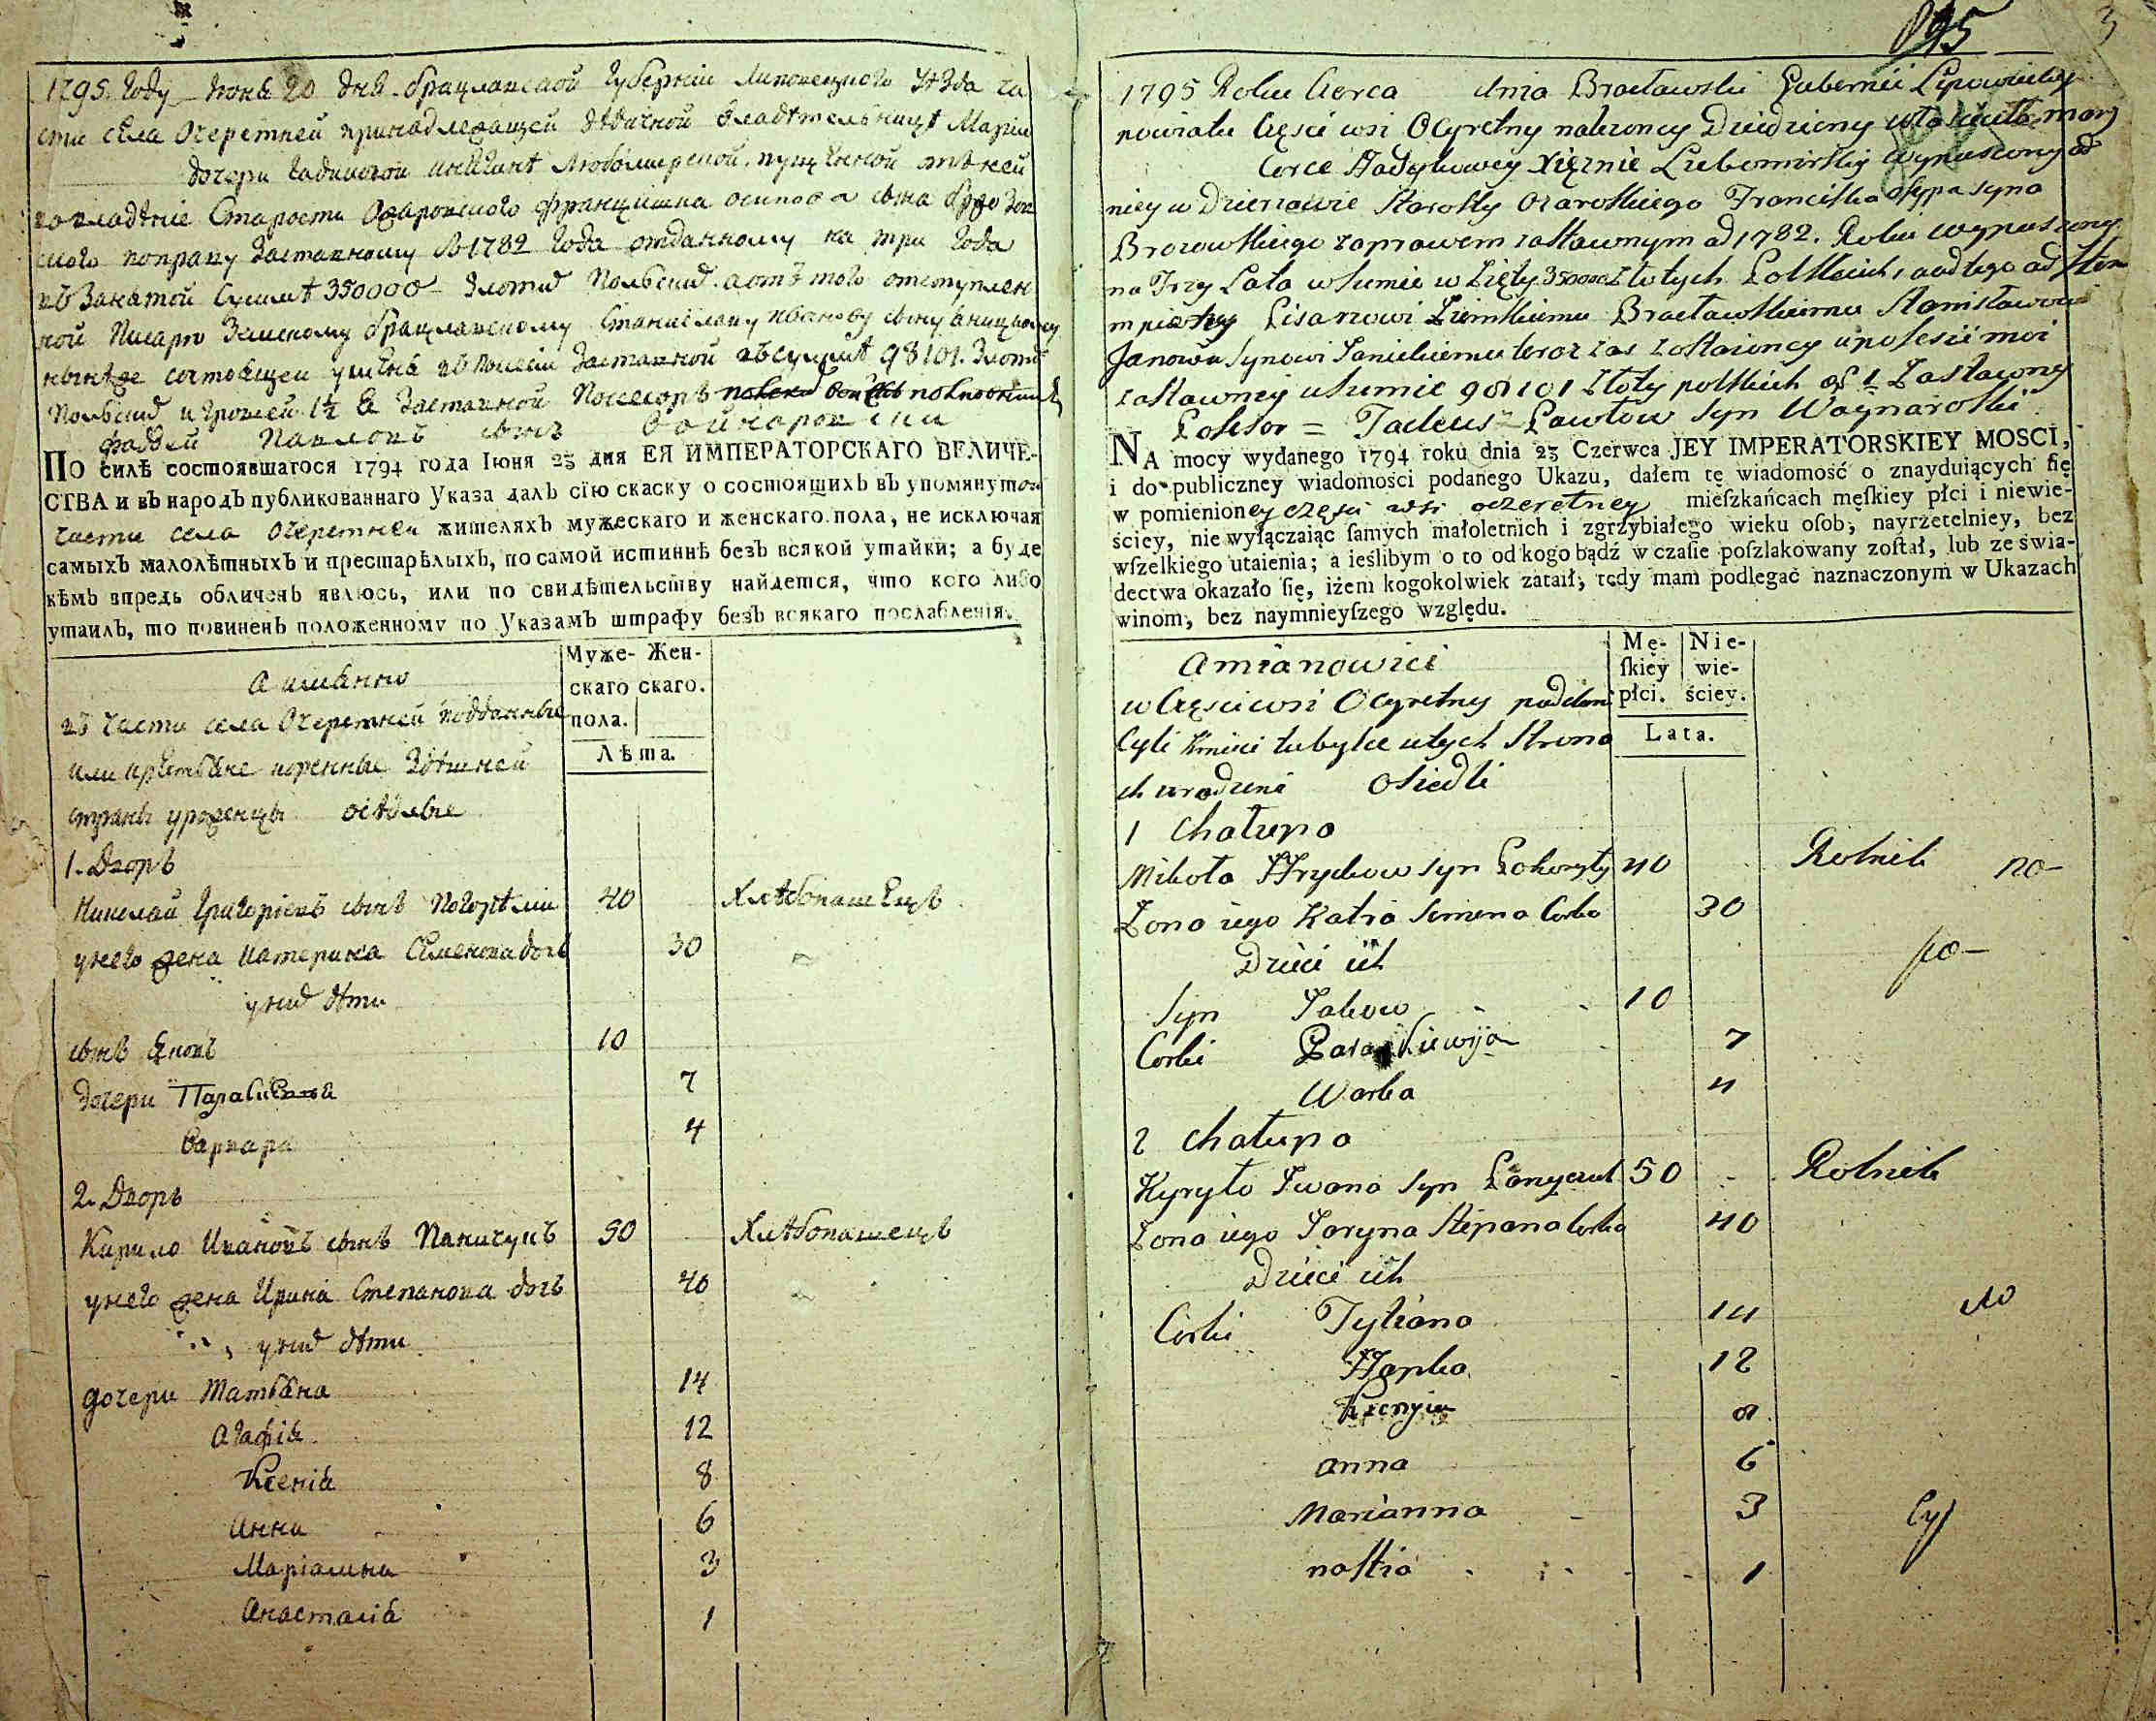 1795 Году Июня 20 дня брацлавской Губернии Липовецкого уѣзда ча
сти села Очеретней принадлежащей дѣдичной владѣтельницѣ Маріи
дочери княгинѣ Любомирской
во владѣніе Старости Ожаровского францишка осипова сына
ского поправу Заставному В 1782 Года отданному на три Года
въ Занятой Суммѣ 350000 Злотих Польских а отъ того отступлен
ной Писарю Земскому брацлавскому Станиславу иванову сыну
состоящей въ посесіи Заставной въ суммѣ 98101 Злоти
Польских и Грошей 1½ Заставной Посесоръ
фаддей Павловъ сынъ Войнаровски
По силѣ состоявшагося 1794 года Іюня 23 дня ЕЯ ИМПЕРАТОРСКАГО ВЕЛИЧЕ-
СТВА и въ народъ публикованнаго Указа далъ сію скаску о состоящихъ въ упомянутой
части села Очеретней жителяхъ мужескаго и женскаго пола, не исключая
самыхъ малолѣтныхъ и престарѣлыхъ, по самой истиннѣ безъ всякой утайки; а буде
кѣмъ впредь обличенъ явлюсь, или по свидѣтельству найдется, что кого либо
утаилъ, то повиненъ положенному по Указамъ штрафу безъ всякаго послабленія.
Муже- Жен-
скаго скаго.
пола.
Лѣта.
а имянно
въ части села Очеретней подданные
или крестьяне коренные Здѣшней
страны уроженцы осѣдлые
1. Дворъ
Николай Григорієвъ сынъ Погорѣли 40 Хлѣбопашецъ
у него жена катерина Семенова дочь 30
у них дѣти
сынъ Яковъ 10
дочери Параскевія 7
Варвара 4
2. Дворъ
Кирило Ивановъ сынъ Паничукъ 50 Хлѣбопашецъ
у него жена Ирина Степанова дочь 40
у них дѣти
дочери Татьяна 14
Агафія 12
Ксенія 8
Анна 6
Маріанна 3
Анастасія 1
895 3
1795 Roku Czerca dnia Bracławski Gubernii Lipowiecky
powiatu Częsci wsi Oczyretny nalezoncy Dziedziczny
Corce Xięznie Lubomirskiy wypusczony od
niey w Dzierzawie Starosty Ozaroskiego Franciska Asypa syna
Brozowskiego zaprawem zastawnym ad 1782. Roku wypusczony
na Trzy Lata w sumie w Zięty 350000 Złotych Polskich, a od tego
Pisarzowi Ziemskiemu Bracławskiemu Stanisławowi
Janowu Synowi
zastawney w sumie 98101 Złoty polskich
Posesor = Tadeus Pawłow Syn Waynaroski
NA mocy wydanego 1794 roku dnia 23 Czerwca JEY IMPERATORSKIEY MOSCI,
i do publiczney wiadomości podanego Ukazu, dałem tę wiadomość o znayduiących ſię
w pomienioney części wsi oczeretney mieſzkańcach męſkiey płci i niewie-
ściey, nie wyłączaiąc ſamych małoletnich i zgrzybiałego wieku oſob, nayrzetelniey, bez
wſzelkiego utaienia; a ieślibym o to od kogo bądź w czaſie poſzlakowany zoſtał, lub ze świa-
dectwa okazało ſię, iżem kogokolwiek zataił, tędy mam podlegać naznaczonym w Ukazach
winom, bez naymnieyſzego względu.
Mę- Nie-
ſkiey wie-
płci. ściey.
Lata.
amianowici
w Częsci wsi Oczyretny poddani
Cyli Kmici tubylce w tych Strona
ch urodzeni Osiedli
1 Chałupa
Mikoła Hryckow syn Pohoryły 40 Rolnik
Zona iego Katra Semena Corka 30
Dzieci ich
Syn Jakow 10
Corki Paraskiewija 7
Warka 4
2 Chałupa
Kyryło Iwana Syn Panyczuk 50 Rolnik
Zona iego Jaryna Stepana Corka 40
Dzieci ich
Corki Tytiana 14
Hapka 12
Ksenyia 8
Anna 6
Marianna 3
nastia 1